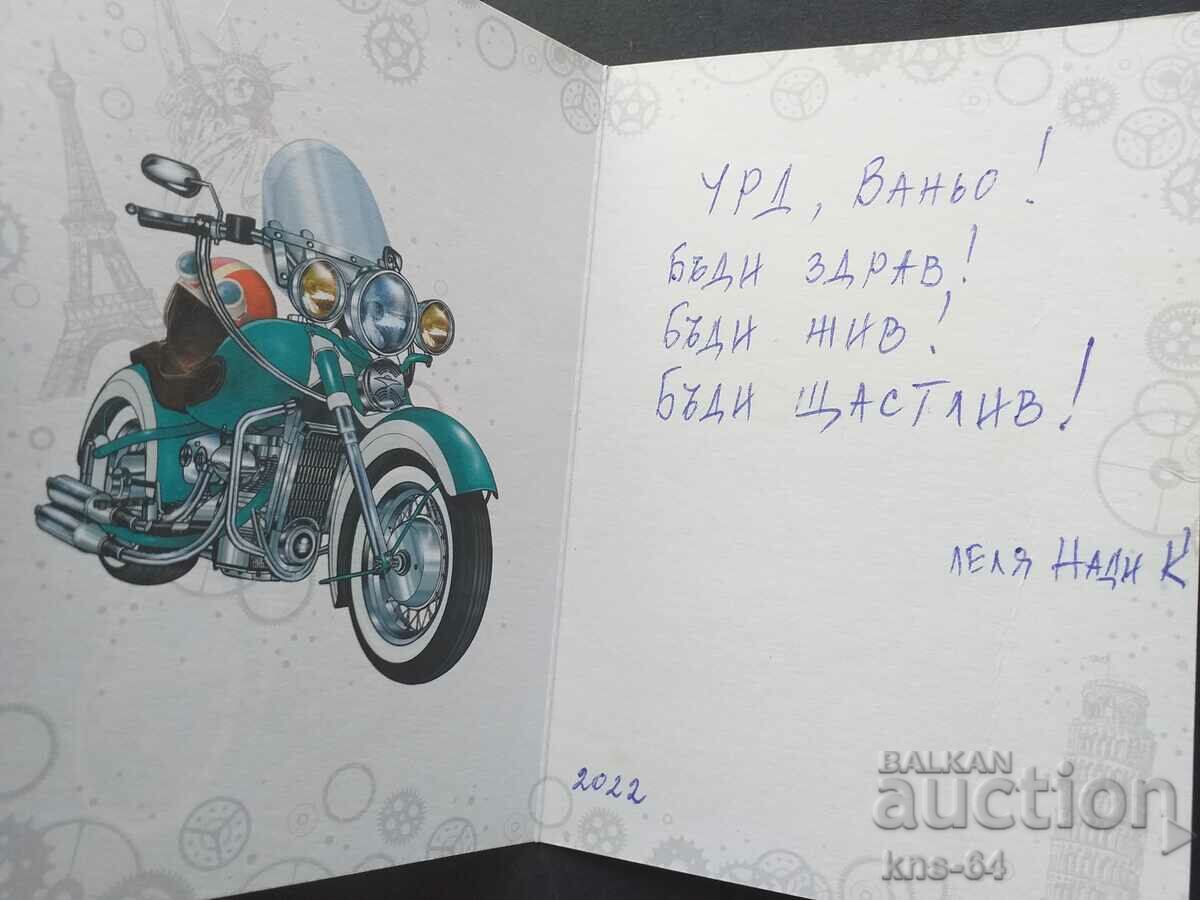 ЧРД, ВАНЬО!
БЪДИ ЗДРАВ!
БЪДИ ЖИВ!
БЪДИ ЩАСТЛИВ!
ЛЕЛЯ НАДИ К
2022
BALKAN
auction
kns-64